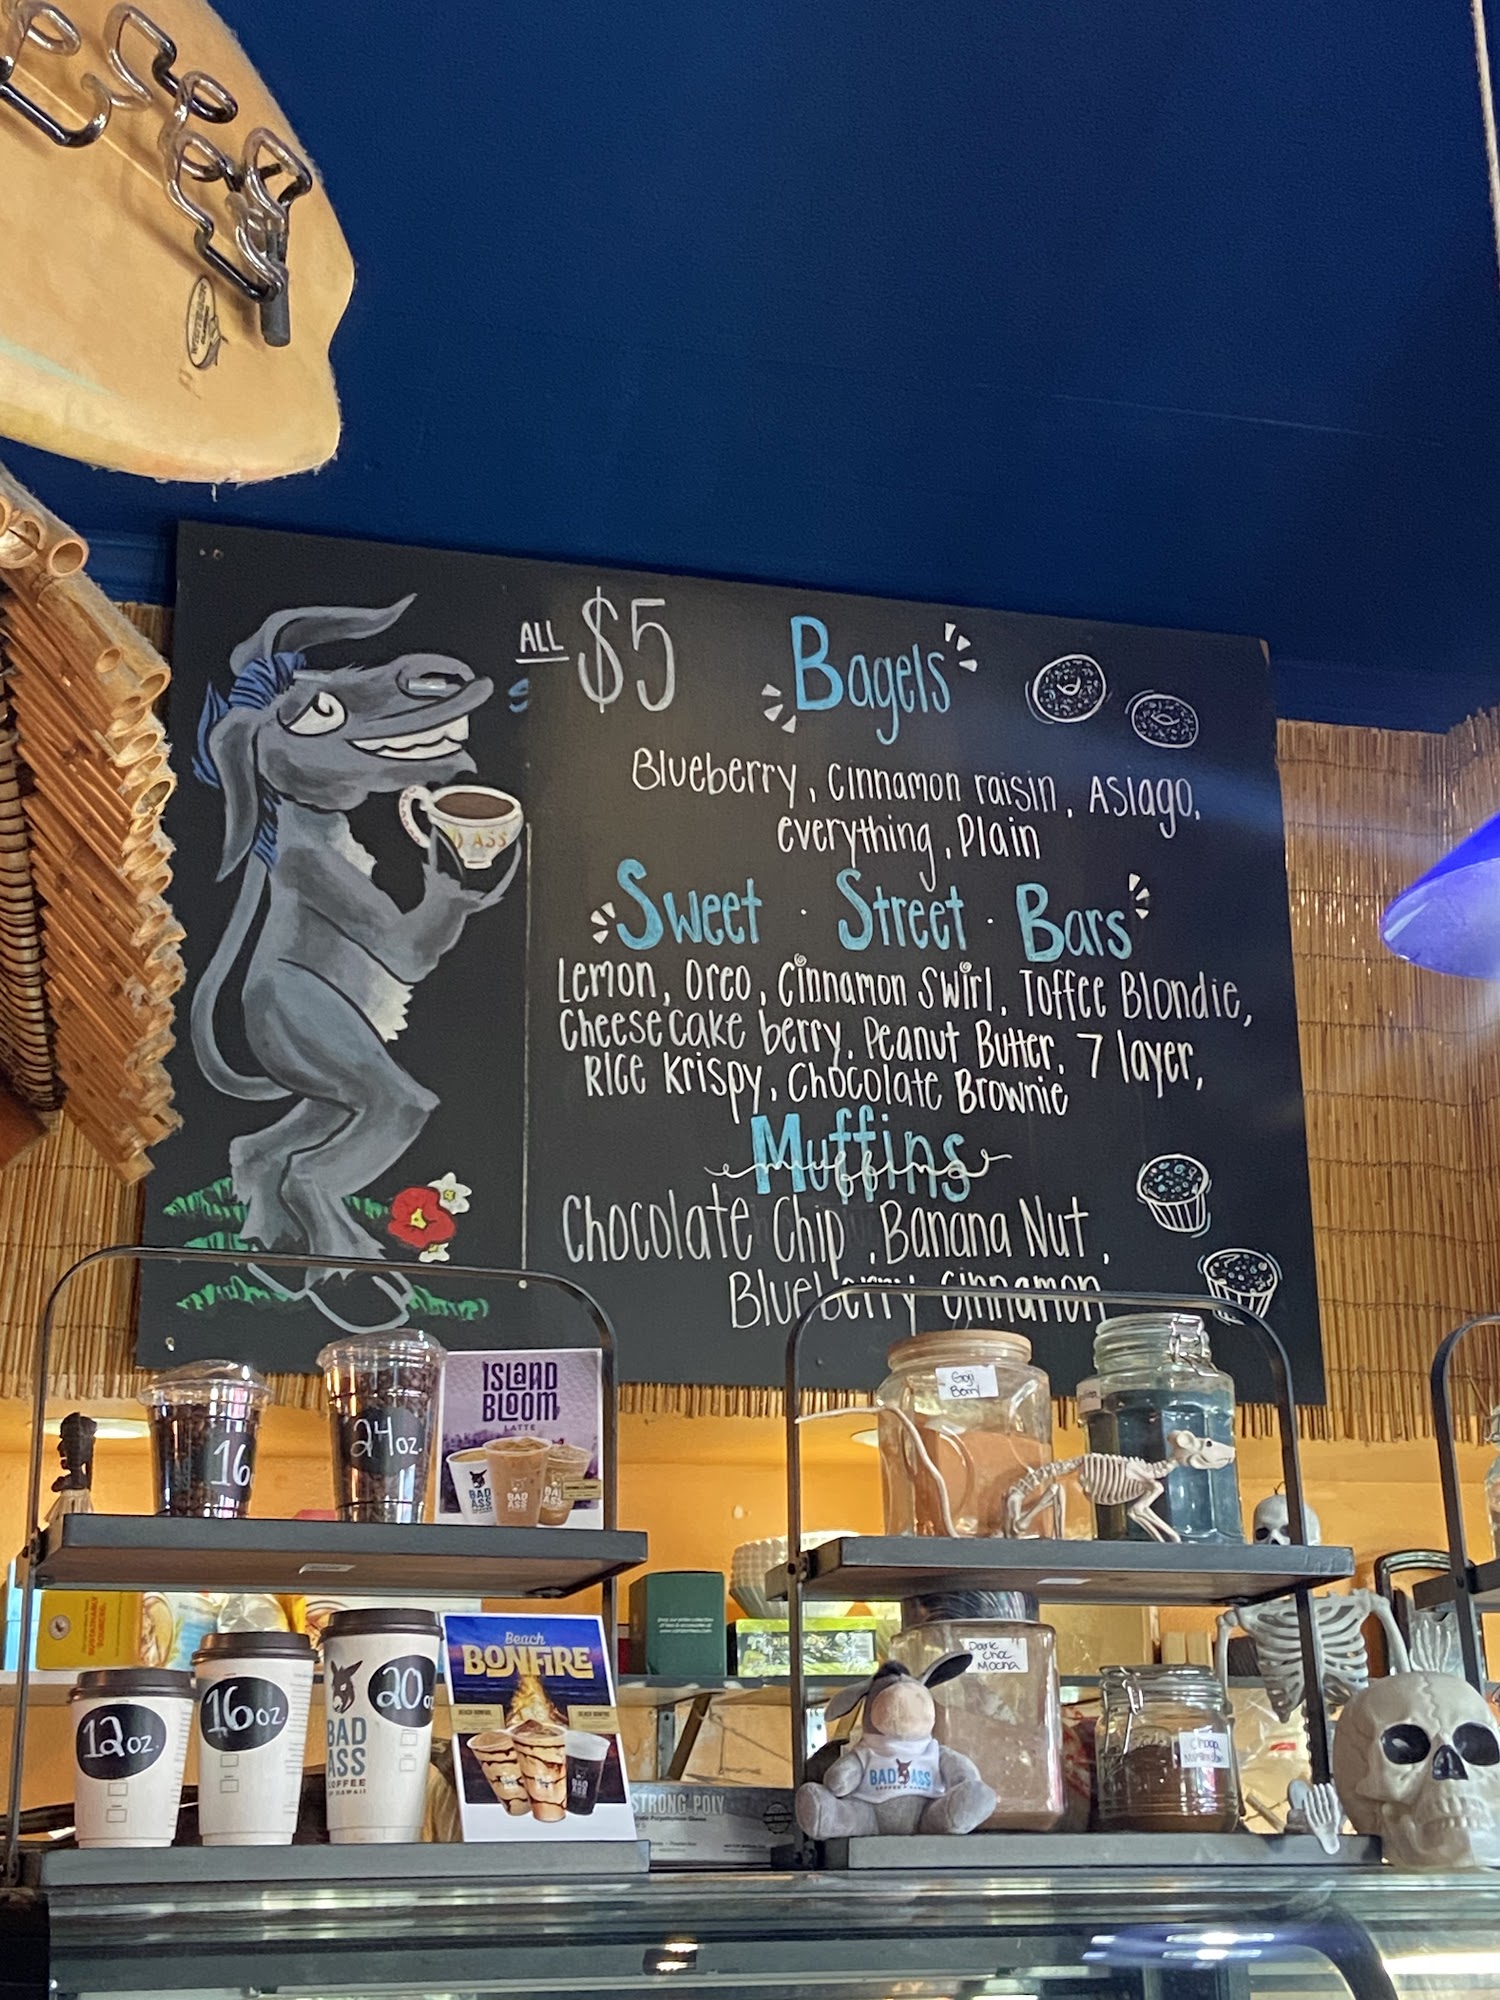 ALL $5
Bagels
Blueberry, Cinnamon raisin, Asiago,
everything, Plain
Sweet · Street · Bars
Lemon, Oreo, Cinnamon Swirl, Toffee Blondie,
Cheesecake berry, Peanut Butter, 7 layer,
Rice Krispy, Chocolate Brownie
Muffins
muffins
Chocolate Chip, Banana Nut,
Blueberry Cinnamon
ASS
16
24oz.
ISLAND
BLOOM
LATTE
BAD
ASS
BAD
ASS
BAD
ASS
Goji
Berry
12oz.
16oz.
20oz
BAD
ASS
COFFEE
OF HAWAII
Beach
BONFIRE
BEACH BONFIRE
BAD
ASS
SUSTAINABLY
SOURCED.
Dark
Choc
Mocha
BAD ASS
STRONG POLY